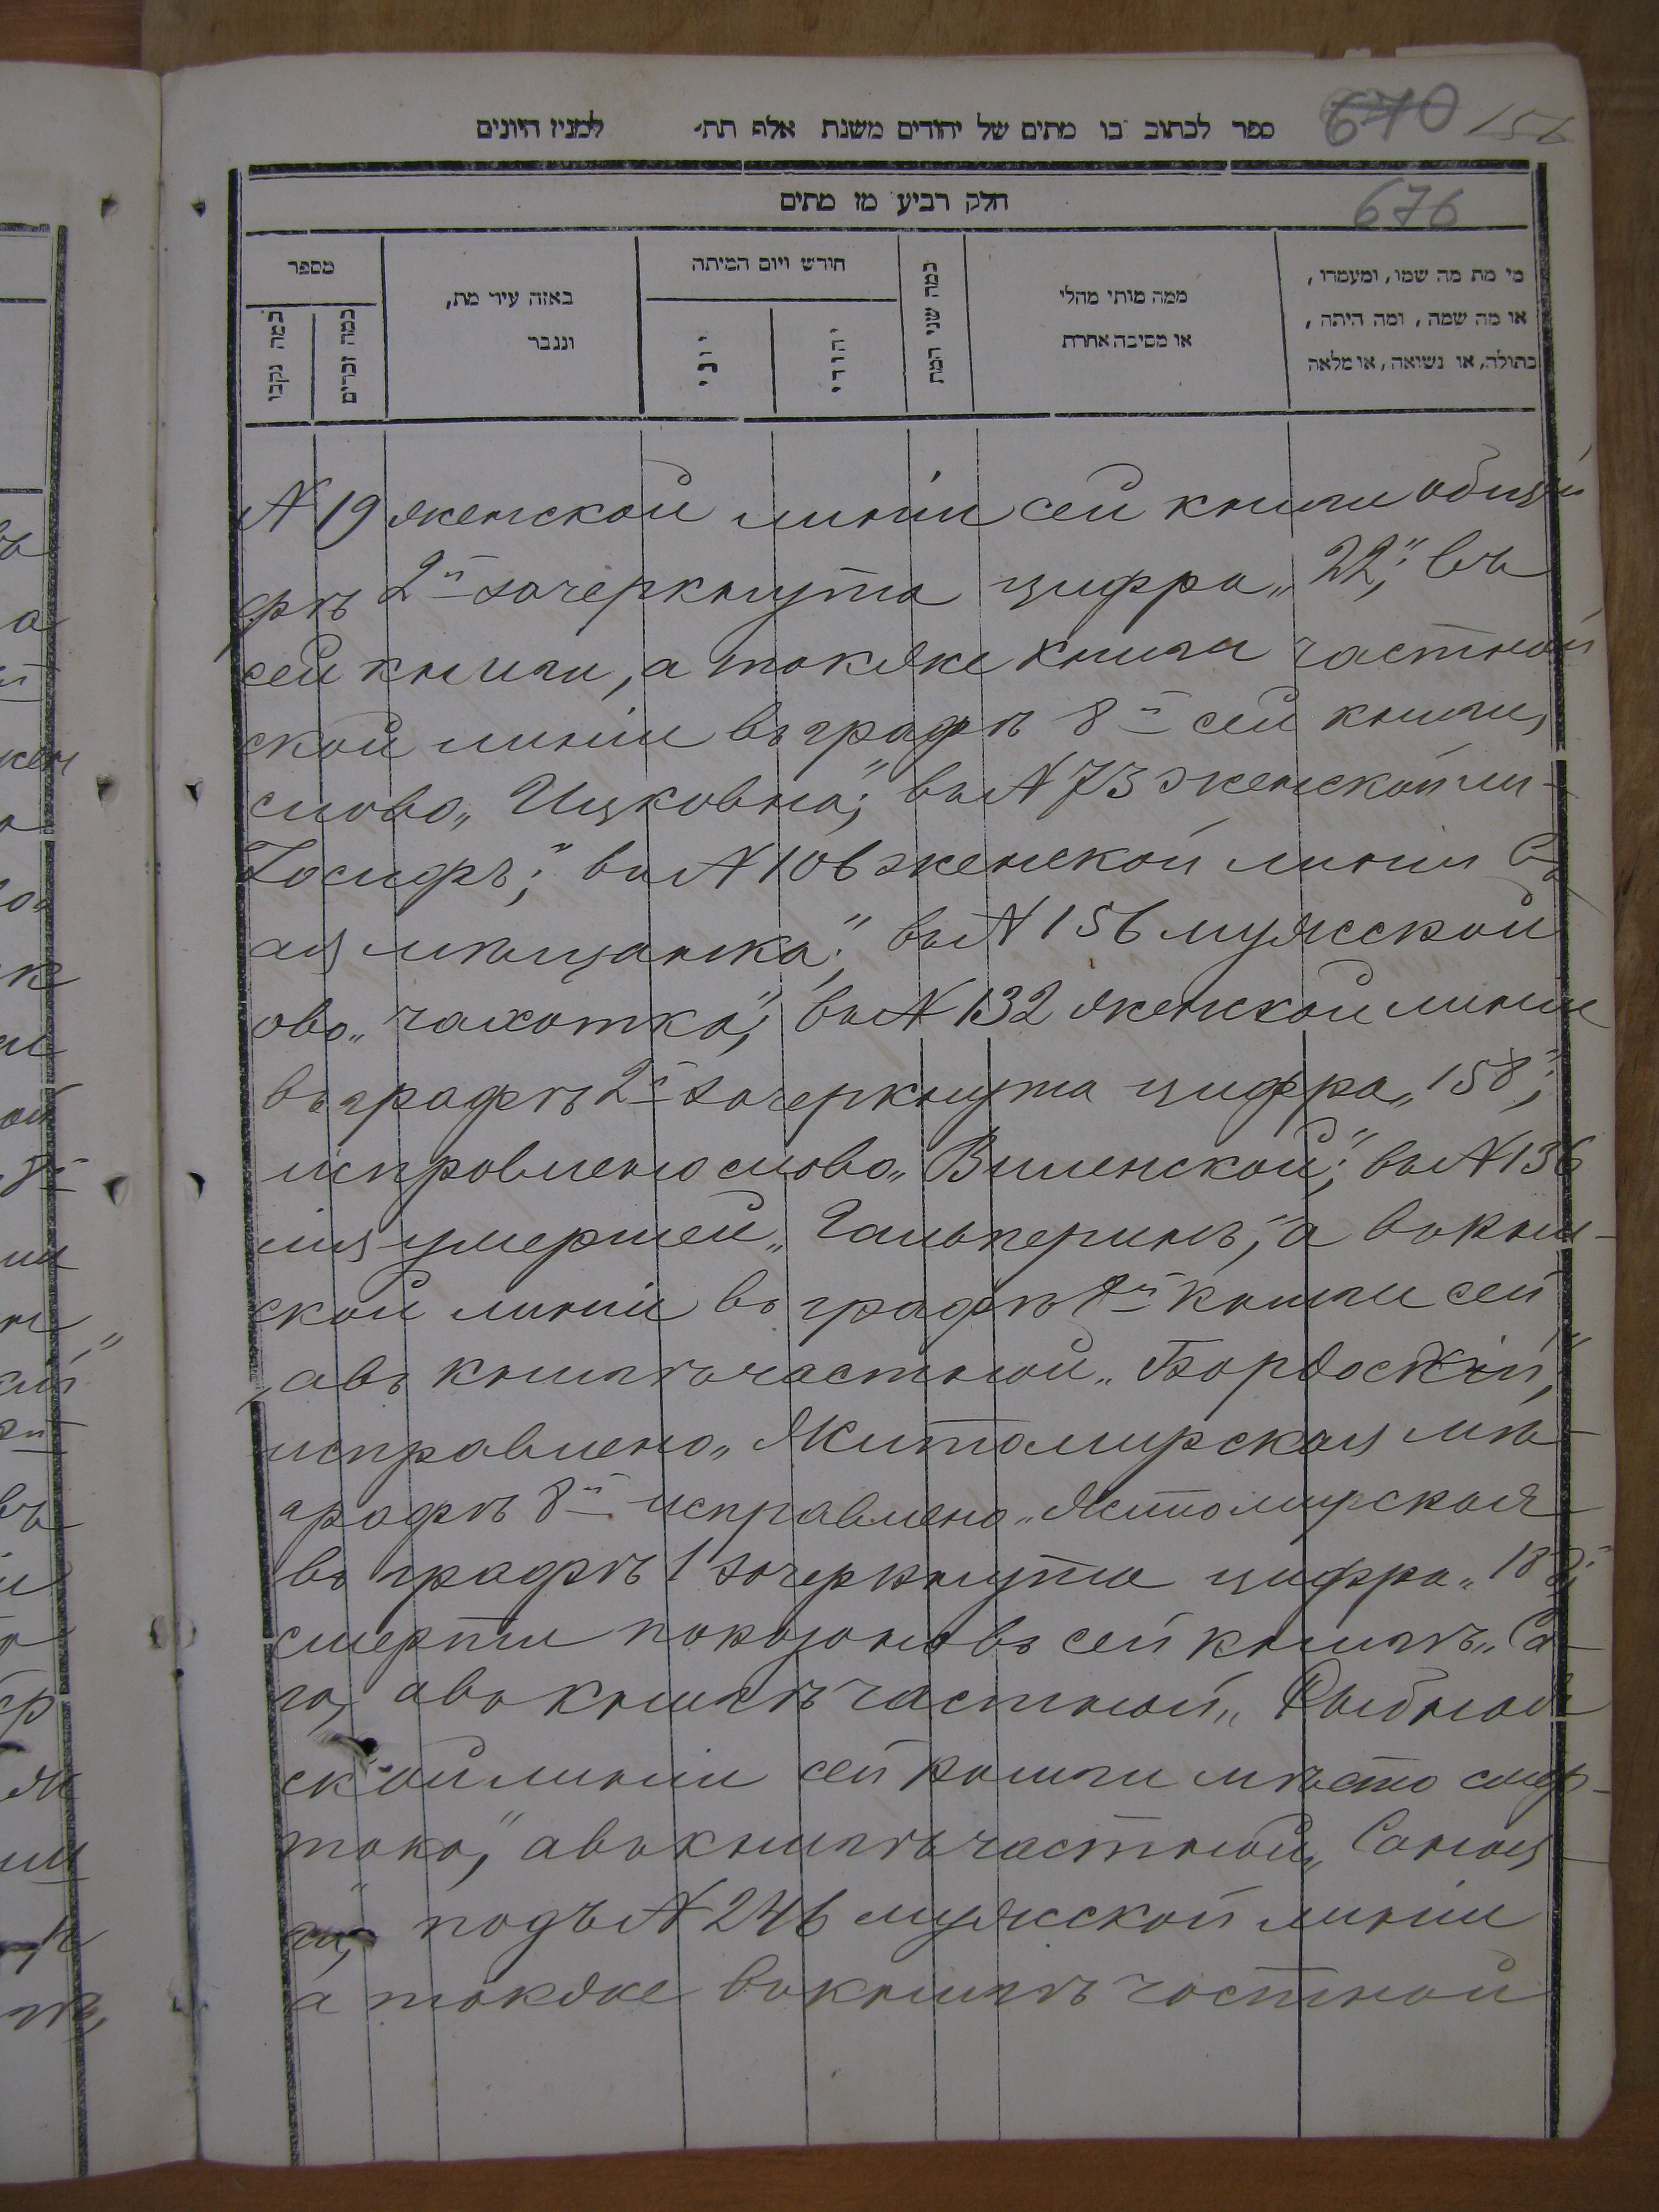 ספר לכתוב בו מתים של יהודים משנת אלף תת׳ למנין היונים
670 156
חלק רביע מן מתים
676
מספר
כמה נקבו
כמה זכרים
באזה עיר מת,
ונגבר
חודש ויום המיתה
יוני
יהודי
כמה שני המת
ממה מותי מהלי
או מסיבה אחרת
מי מת מה שמו, ומעמדו,
או מה שמה, ומה היתה,
בתולה, או נשואה, או מלאה
№ 19 женской линіи сей книги общей
фѣ 2й зачеркнута цифра „22"; въ
сей книги, а также книги частной
ской линіи въ графѣ 8й сей книги,
слово „Ицковна"; въ № 73 женской ли-
Іосифъ"; въ № 106 женской линіи
ая мѣщанка"; въ № 156 мужской
ово „чахотка"; въ № 132 женской линіи
въ графѣ 2й зачеркнута цифра „158";
исправлено слово „Виленской"; въ № 136
лія умершей „Гальперинъ", а въ кни-
ской линіи въ графѣ 8й книги сей
а въ книгѣ частной „Бордоскій",
исправлено „Житомирская мѣ-
графѣ 8й исправлено „Житомирская
въ графѣ 1 зачеркнута цифра „188";
смерти показано въ сей книгѣ „Са-
го, а въ книгѣ частной „Рыбная
ской линіи сей книги мѣсто смер-
тока", а въ книгѣ частной „Санная
подъ № 246 мужской линіи
а также въ книгѣ частной